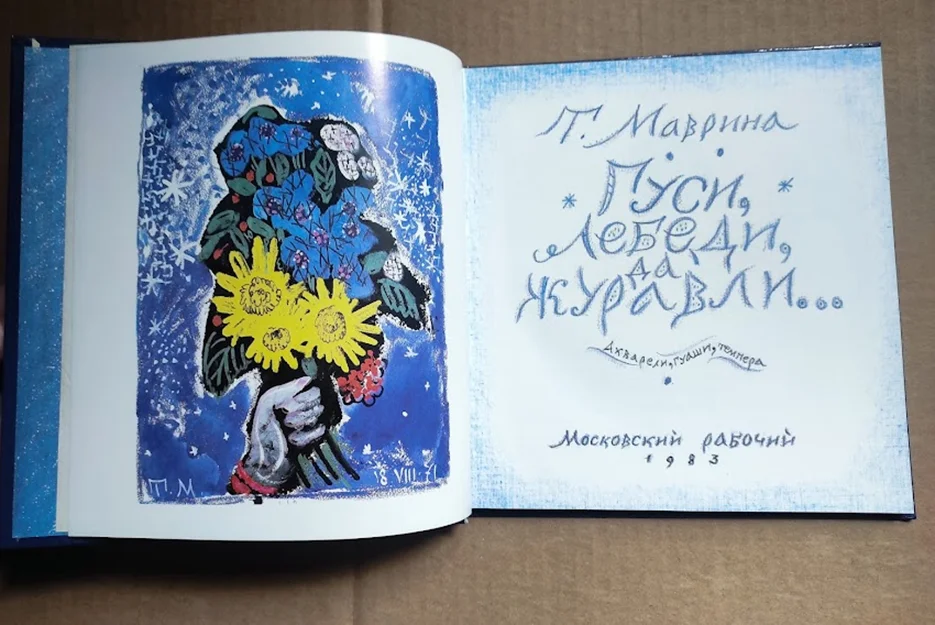 Т. М
18 VIII 71
Т. Маврина
Гуси,
лебеди,
да
журавли...
Акварели, гуаши, темпера
Московский рабочий
1983